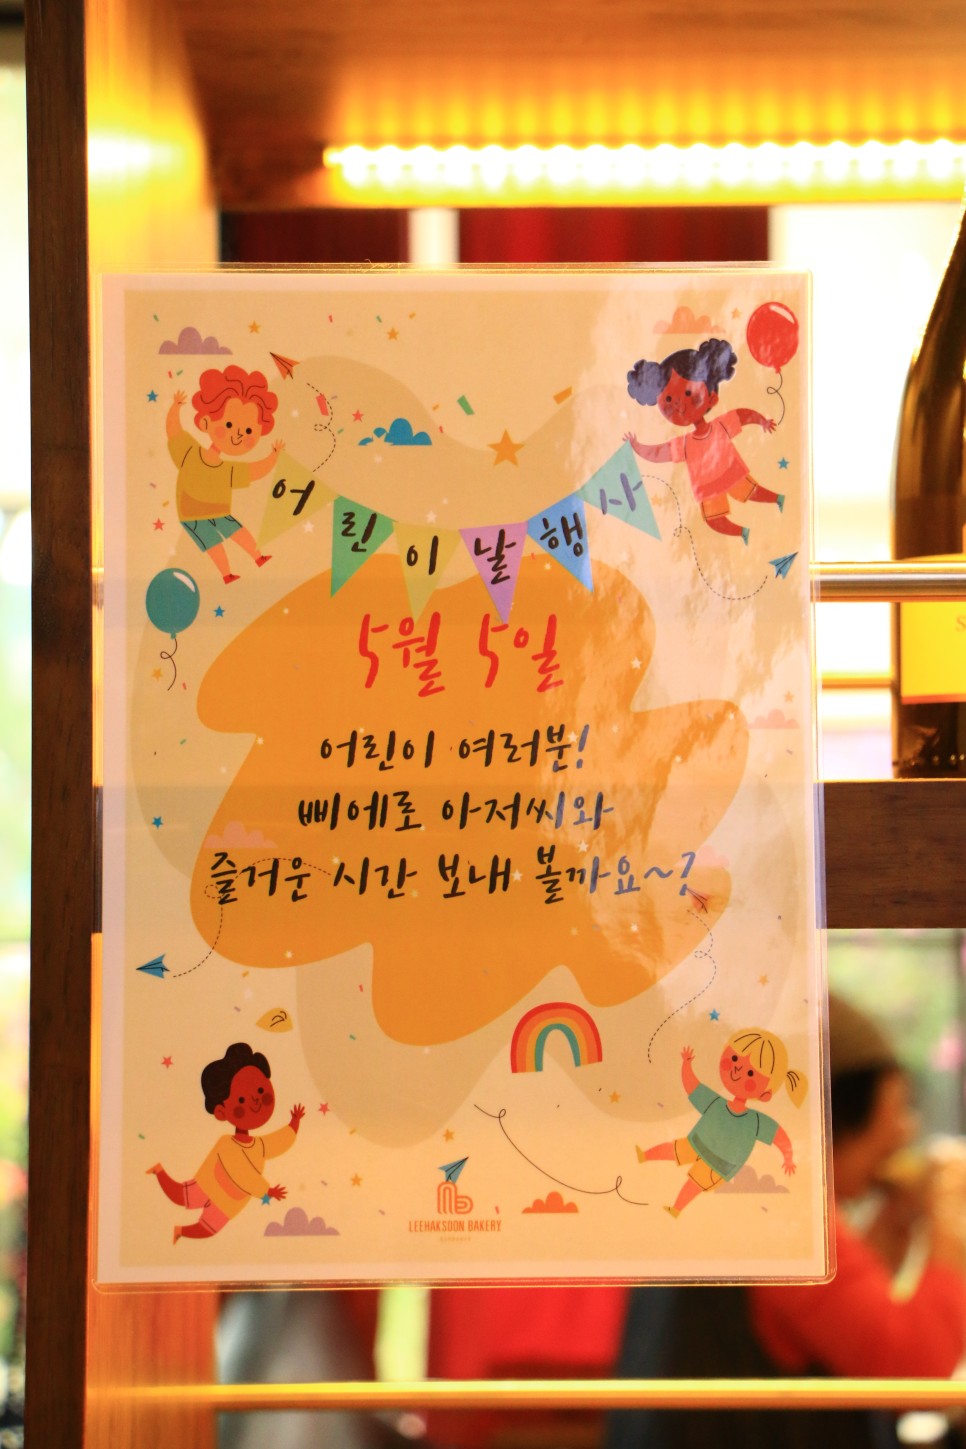 어린이날행사
5월 5일
어린이 여러분!
삐에로 아저씨와
즐거운 시간 보내 볼까요~?
LEEHAKSOON BAKERY
S